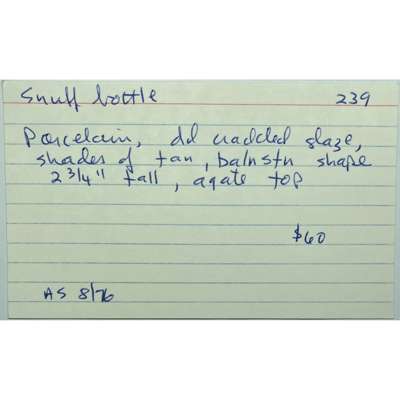 Snuff bottle 239
Porcelain, dd crackled glaze,
shades of tan, balnstn shape
2 3/4" tall, agate top
$60
AS 8/76